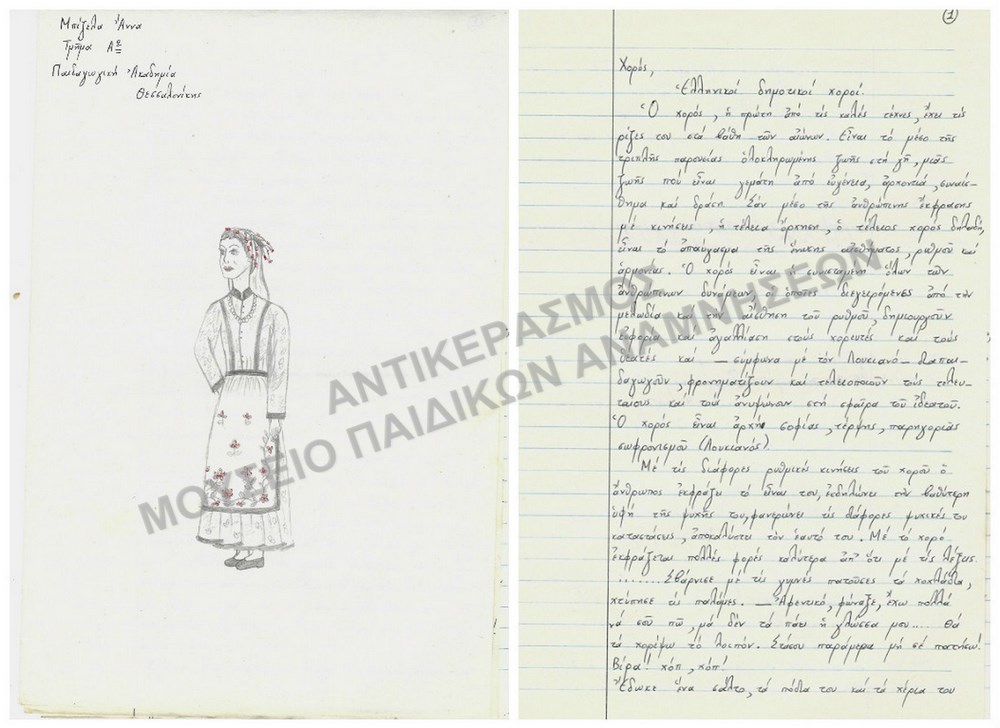 Μπέζελα Ἄννα
Τμῆμα Α8
Παιδαγωγική Ἀκαδημία
Θεσσαλονίκης
1
Χορός,
Ἑλληνικοί δημοτικοί χοροί.
Ὁ χορός, ἡ πρώτη ἀπό τίς καλές τέχνες, ἔχει τίς
ρίζες του στά βάθη τῶν αἰώνων. Εἶναι τό μέσο τῆς
τριπλῆς παρουσίας ὁλοκληρωμένης ζωῆς στή γῆ, μιᾶς
ζωῆς πού εἶναι γεμάτη ἀπό εὐγένεια, ἀρχοντιά, συναίσ-
θημα καί δράση. Σάν μέσο τῆς ἀνθρώπινης ἔκφρασης
μέ κινήσεις, ἡ τέλεια ὄρχηση, ὁ τέλειος χορός δηλαδή,
εἶναι τό ἀπαύγασμα τῆς ἔννοιας αἰσθήματος, ρυθμοῦ καί
ἁρμονίας. Ὁ χορός εἶναι ἡ συνισταμένη ὅλων τῶν
ἀνθρώπινων δυνάμεων οἱ ὁποῖες διεγειρόμενες ἀπό τήν
μελωδία καί τήν αἴσθηση τοῦ ρυθμοῦ, δημιουργοῦν
εὐφορία καί ἀγαλλίαση στούς χορευτές καί τούς
θεατές καί — σύμφωνα μέ τόν Λουκιανό — διαπαι-
δαγωγοῦν, φρονηματίζουν καί τελειοποιοῦν τούς τελευ-
ταίους καί τούς ἀνυψώνουν στή σφαῖρα τοῦ ἰδεατοῦ.
Ὁ χορός εἶναι ἀρχή σοφίας, τέρψης, παρηγοριάς
σωφρονισμοῦ (Λουκιανός)
Μέ τίς διάφορες ρυθμικές κινήσεις τοῦ χοροῦ ὁ
ἄνθρωπος ἐκφράζει τό εἶναι του, ἐκδηλώνει τήν βαθύτερη
ὑφή τῆς ψυχῆς του, φανερώνει τίς διάφορες ψυχικές του
καταστάσεις, ἀποκαλύπτει τόν ἑαυτό του. Μέ τό χορό
ἐκφράζεται πολλές φορές καλύτερα ἀπ' ὅτι μέ τίς λέξεις.
....... Σβάρνισε μέ τίς γυμνές πατοῦσες τά χοχλάδια,
χτύπησε τίς παλάμες. — Ἀφεντικό, φώναξε, ἔχω πολλά
νά σοῦ πῶ, μά δέν τά πάει ἡ γλώσσα μου.... Θά
τά χορέψω τό λοιπόν. Στάσου παράμερα μή σέ πατήσω!
Βίρα! χόπ, χόπ!
Ἔδωκε ἕνα σάλτο, τά πόδια του καί τά χέρια του
ΑΝΤΙΚΕΡΑΣΜΟΣ
ΜΟΥΣΕΙΟ ΠΑΙΔΙΚΩΝ ΑΝΑΜΝΗΣΕΩΝ